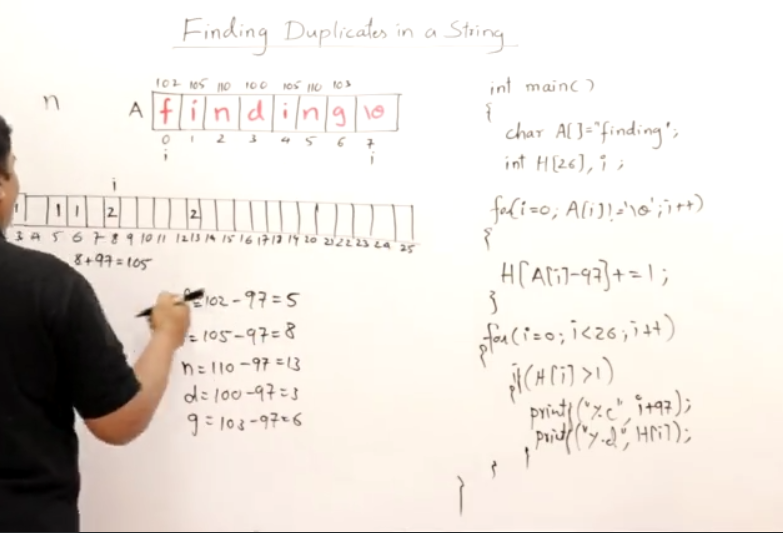 Finding Duplicates in a String
102 105 110 100 105 110 103
n A f i n d i n g \0
0 1 2 3 4 5 6 7
i i
i
1 1 1 2 2
3 4 5 6 7 8 9 10 11 12 13 14 15 16 17 18 19 20 21 22 23 24 25
8+97=105
=102-97=5
=105-97=8
n=110-97=13
d=100-97=3
g=103-97=6
int main()
{
char A[]="finding";
int H[26], i ;
for(i=0; A[i]!='\0';i++)
{
H[A[i]-97]+=1;
}
for(i=0; i<26; i++)
{
if(H[i]>1)
{
printf("%c", i+97);
printf("%d", H[i]);
}
}
}